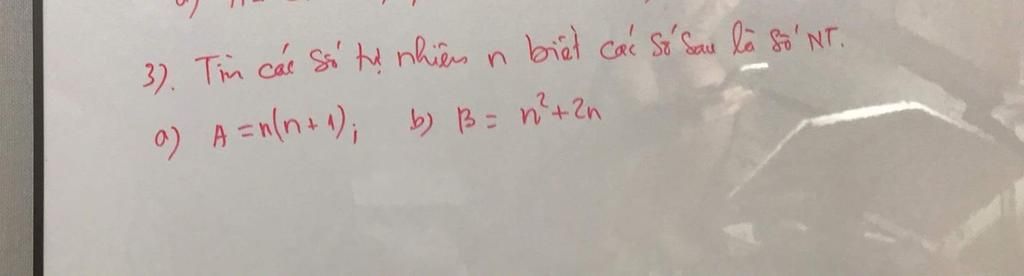 3). Tìm các số tự nhiên n biết các số sau là số NT.
a) A = n(n+1); b) B = n²+2n